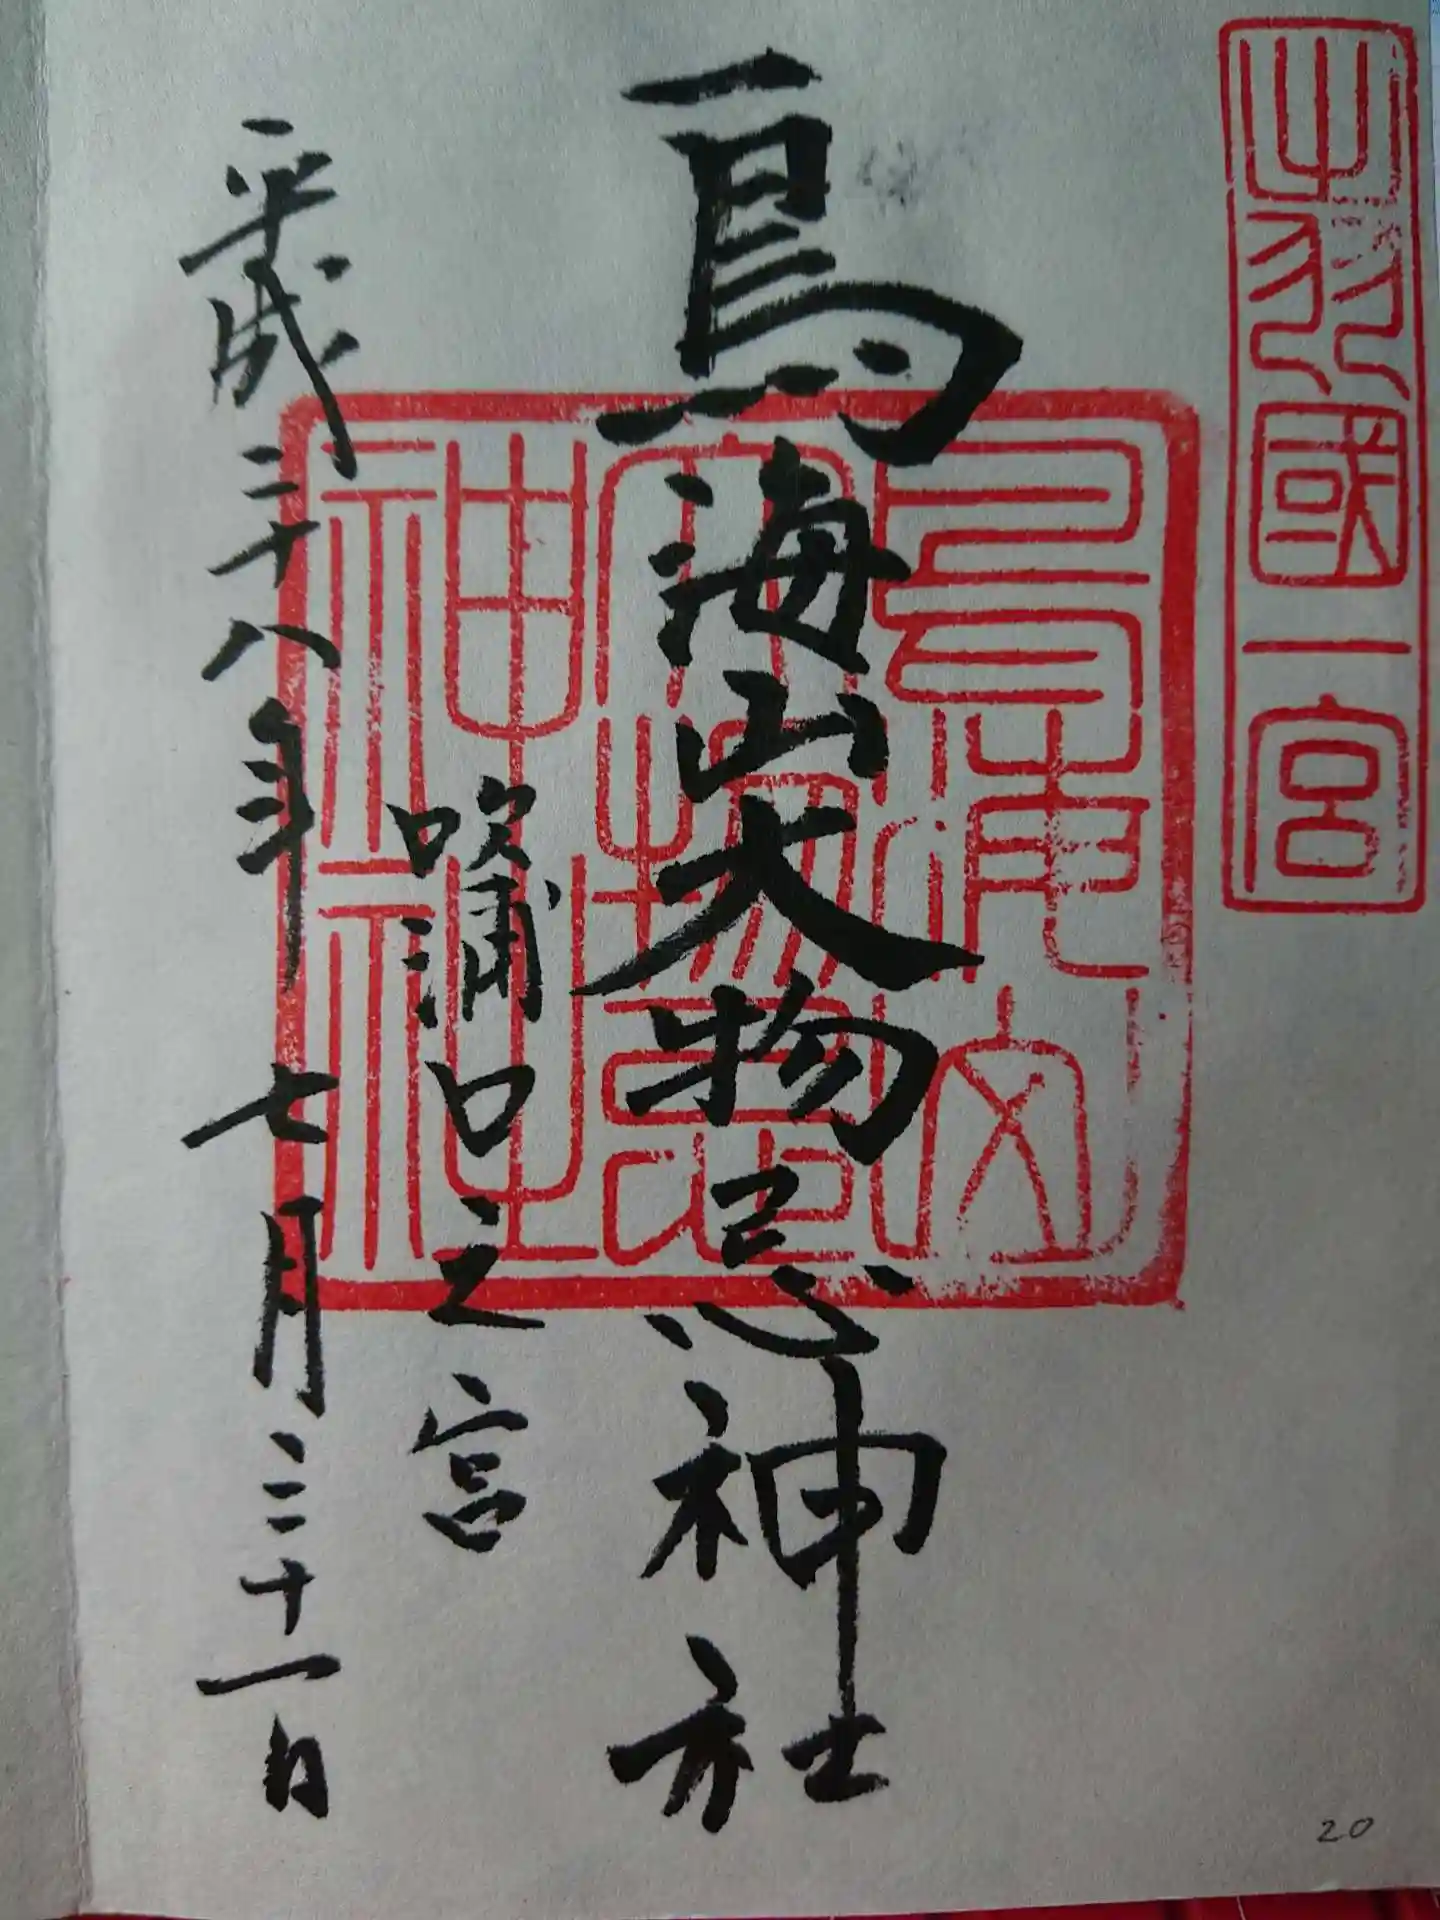 出羽國一宮
鳥海山大物忌神社
吹浦口之宮
平成二十八年 七月三十一日
大物忌
神社
20